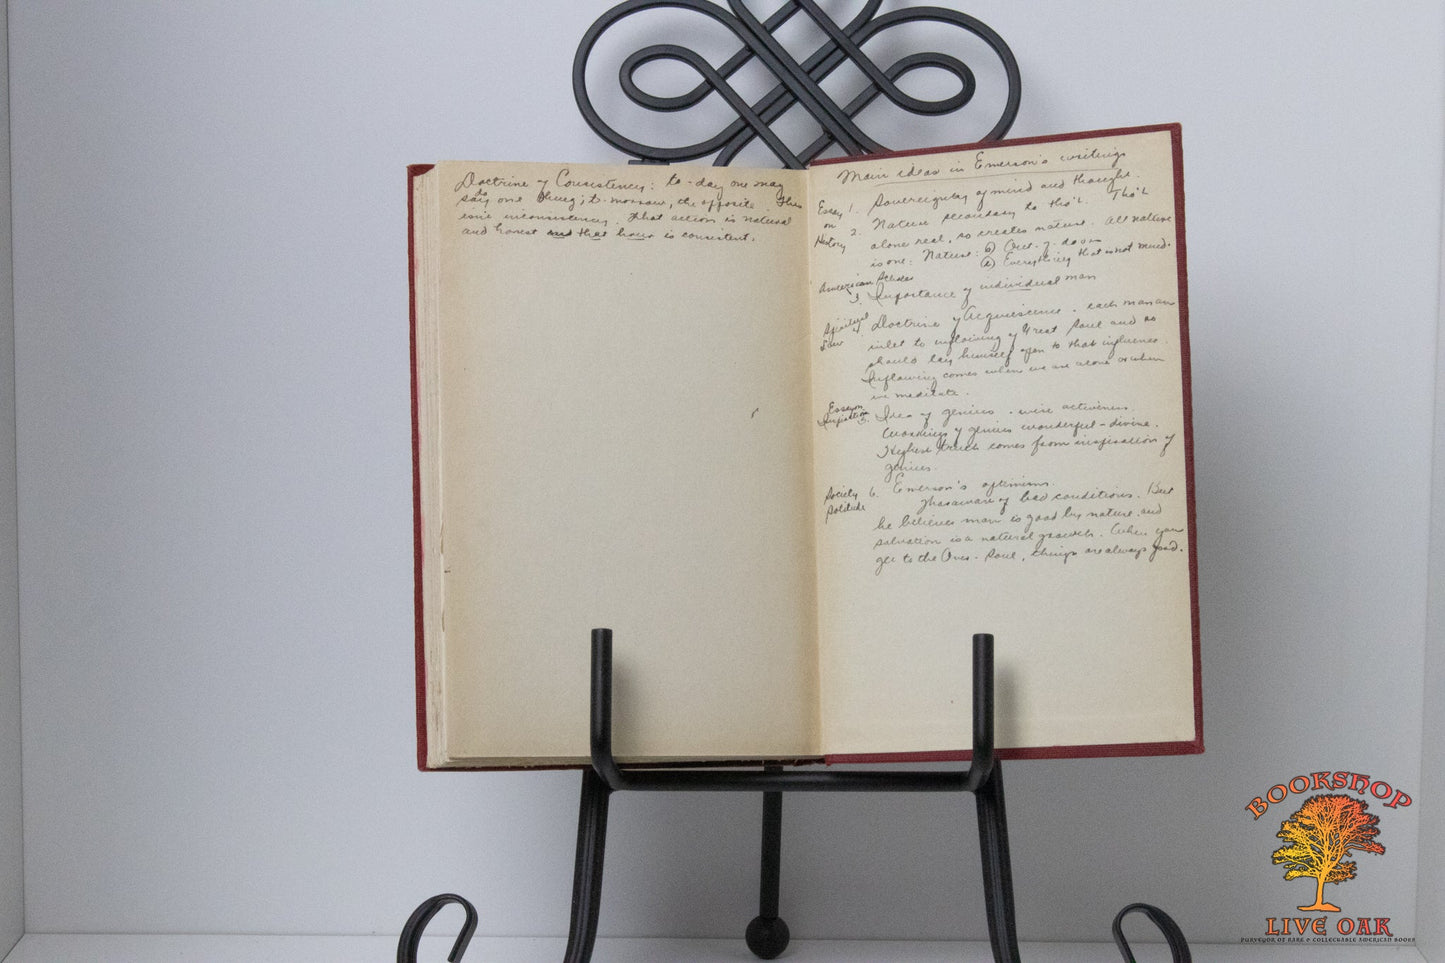 Doctrine of Consistency: to-day one may
say one thing; to-morrow, the opposite. This
isn't inconsistency. That action is natural
and honest and that hour is consistent.
Main ideas in Emerson's writings
Essay on History
1. Sovereignty of mind and thought.
2. Nature secondary to tho't. Tho't
alone real, so creates nature. All nature
is one: Nature: b) Out-of-doors
a) Everything that is not mind.
American Scholar
3. Importance of individual man
Spiritual Law
4. Doctrine of Acquiescence. each man an
inlet to inflowing of Great Soul and so
should lay himself open to that influence.
Inflowing comes when we are alone or when
we meditate.
Essay on Inspiration
5. Idea of genius.
Workings of genius wonderful - divine.
Highest truth comes from inspiration of
genius.
Society Solitude
6. Emerson's optimism.
aware of bad conditions. But
he believes man is good by nature and
salvation is a natural growth. When you
get to the Over-Soul, things are always good.
BOOKSHOP
LIVE OAK
PURVEYOR OF RARE & COLLECTABLE AMERICAN BOOKS